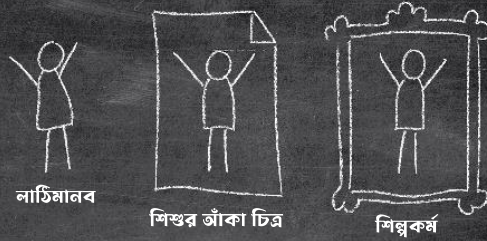 লাঠিমানব
শিশুর আঁকা চিত্র
শিল্পকর্ম